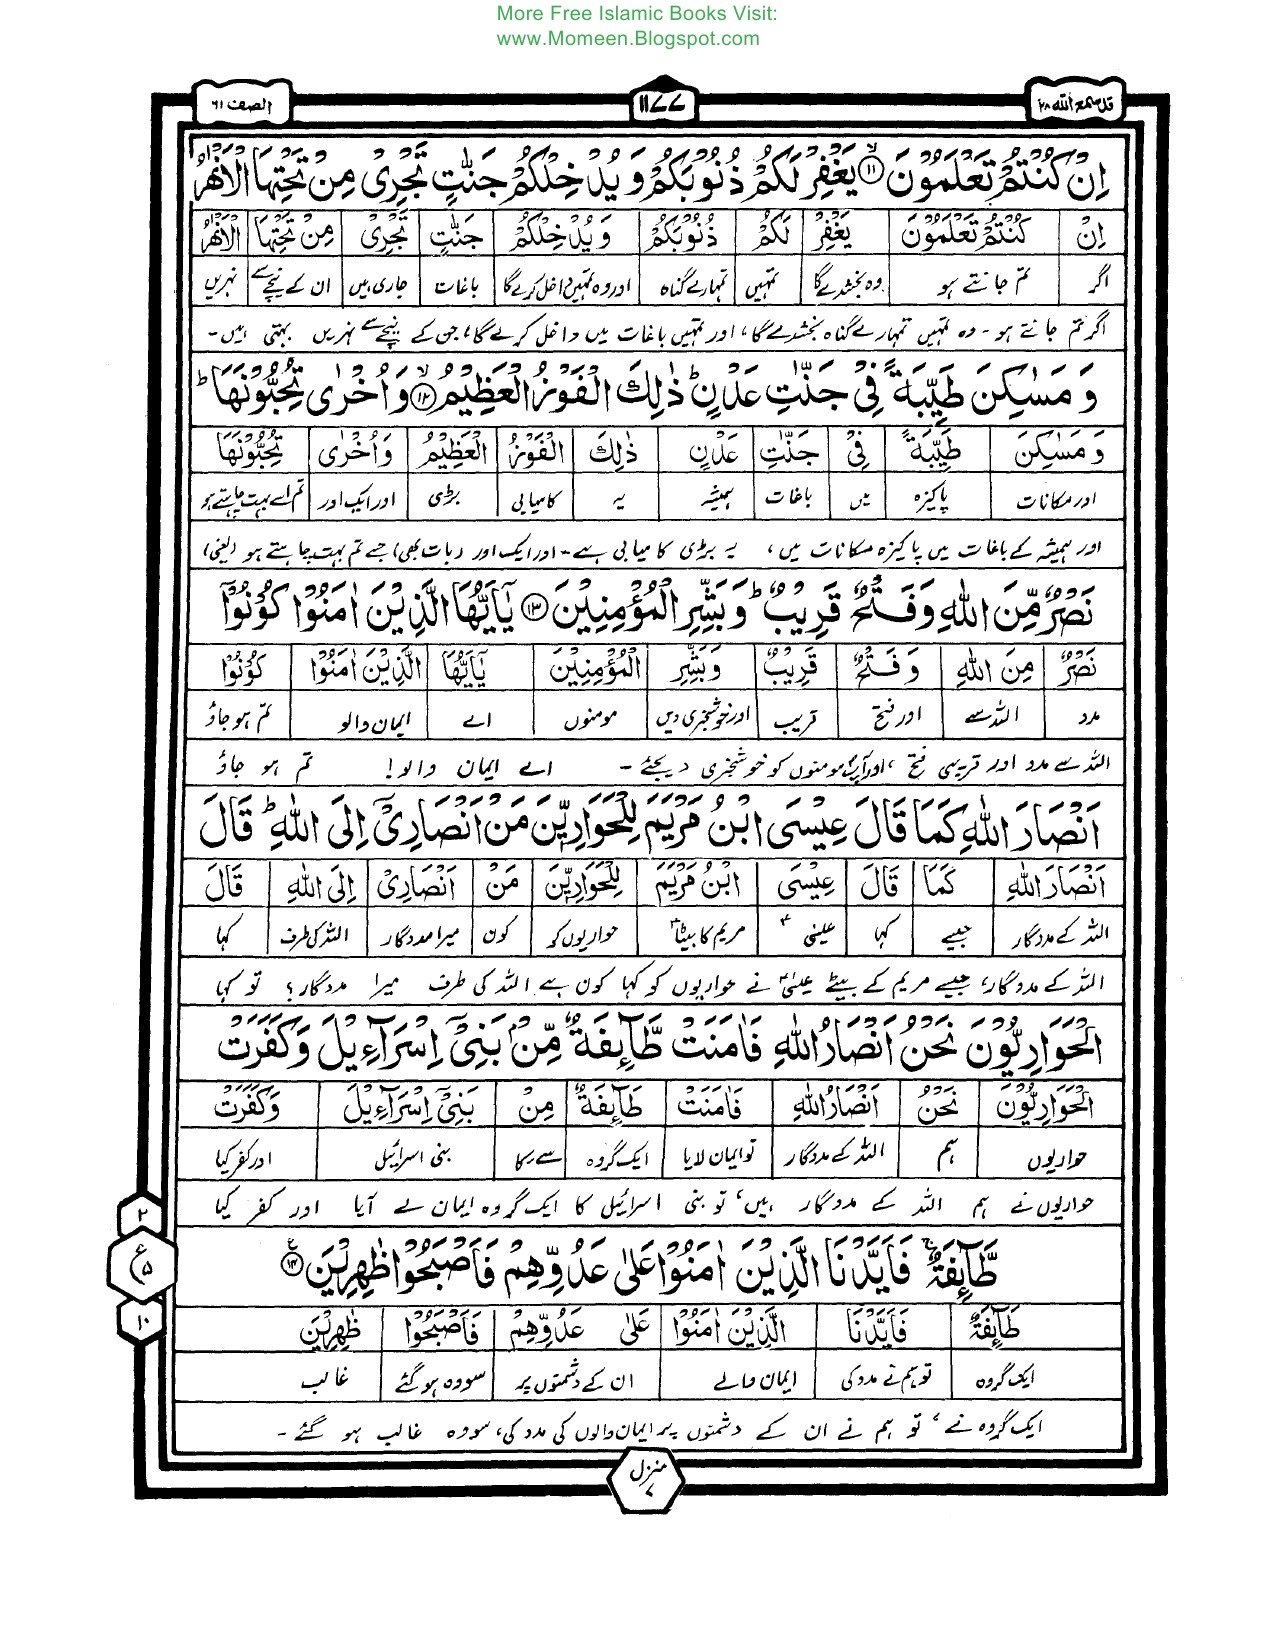 More Free Islamic Books Visit:
www.Momeen.Blogspot.com
قد سمع الله ۲۸
۱۱۷۷
الصف ۶۱
اِنْ كُنْتُمْ تَعْلَمُوْنَ ۙ۱۱ يَغْفِرْ لَكُمْ ذُنُوْبَكُمْ وَيُدْخِلْكُمْ جَنّٰتٍ تَجْرِىْ مِنْ تَحْتِهَا الْاَنْهٰرُ
اِنْ كُنْتُمْ تَعْلَمُوْنَ يَغْفِرْ لَكُمْ ذُنُوْبَكُمْ وَيُدْخِلْكُمْ جَنّٰتٍ تَجْرِىْ مِنْ تَحْتِهَا الْاَنْهٰرُ
اگر تم جانتے ہو وہ بخشدے گا تمہیں تمہارے گناہ اور وہ تمہیں داخل کرے گا باغات جاری ہیں ان کے نیچے سے نہریں
اگر تم جانتے ہو ۔ وہ تمہیں تمہارے گناہ بخشدے گا، اور تمہیں باغات میں داخل کرے گا، جن کے نیچے سے نہریں بہتی ہیں ۔
وَ مَسٰكِنَ طَيِّبَةً فِىْ جَنّٰتِ عَدْنٍ ؕ ذٰلِكَ الْفَوْزُ الْعَظِيْمُ ۙ۱۲ وَاُخْرٰى تُحِبُّوْنَهَا ؕ
وَ مَسٰكِنَ طَيِّبَةً فِىْ جَنّٰتِ عَدْنٍ ذٰلِكَ الْفَوْزُ الْعَظِيْمُ وَاُخْرٰى تُحِبُّوْنَهَا
اور مکانات پاکیزہ میں باغات ہمیشہ یہ کامیابی بڑی اور ایک اور تم اسے بہت چاہتے ہو
اور ہمیشہ کے باغات میں پاکیزہ مکانات میں، یہ بڑی کامیابی ہے ۔ اور ایک اور (بات بھی) جسے تم بہت چاہتے ہو (یعنی)
نَصْرٌ مِّنَ اللّٰهِ وَفَتْحٌ قَرِيْبٌ ؕ وَبَشِّرِ الْمُؤْمِنِيْنَ ۱۳ يٰۤاَيُّهَا الَّذِيْنَ اٰمَنُوْا كُوْنُوْۤا
نَصْرٌ مِّنَ اللّٰهِ وَفَتْحٌ قَرِيْبٌ وَبَشِّرِ الْمُؤْمِنِيْنَ يٰۤاَيُّهَا الَّذِيْنَ اٰمَنُوْا كُوْنُوْۤا
مدد اللہ سے اور فتح قریب اور خوشخبری دیں مومنوں اے ایمان والو تم ہو جاؤ
اللہ سے مدد اور قریبی فتح، اور آپؐ مومنوں کو خوشخبری دیجئے ۔ اے ایمان والو! تم ہو جاؤ
اَنْصَارَ اللّٰهِ كَمَا قَالَ عِيْسَى ابْنُ مَرْيَمَ لِلْحَوَارِيّٖنَ مَنْ اَنْصَارِىْۤ اِلَى اللّٰهِ ؕ قَالَ
اَنْصَارَ اللّٰهِ كَمَا قَالَ عِيْسَى ابْنُ مَرْيَمَ لِلْحَوَارِيّٖنَ مَنْ اَنْصَارِىْۤ اِلَى اللّٰهِ قَالَ
اللہ کے مددگار جیسے کہا عیسیٰؑ مریم کا بیٹا حواریوں کو کون میرا مددگار اللہ کی طرف کہا
اللہ کے مددگار، جیسے مریم کے بیٹے عیسیٰؑ نے حواریوں کو کہا کون ہے اللہ کی طرف میرا مددگار؟ تو کہا
الْحَوَارِيُّوْنَ نَحْنُ اَنْصَارُ اللّٰهِ فَاٰمَنَتْ طَّآئِفَةٌ مِّنْۢ بَنِىْۤ اِسْرَآءِيْلَ وَكَفَرَتْ
الْحَوَارِيُّوْنَ نَحْنُ اَنْصَارُ اللّٰهِ فَاٰمَنَتْ طَّآئِفَةٌ مِنْ بَنِىْۤ اِسْرَآءِيْلَ وَكَفَرَتْ
حواریوں ہم اللہ کے مددگار تو ایمان لایا ایک گروہ سے۔کا بنی اسرائیل اور کفر کیا
حواریوں نے ہم اللہ کے مددگار ہیں، تو بنی اسرائیل کا ایک گروہ ایمان لے آیا اور کفر کیا
طَّآئِفَةٌ ۚ فَاَيَّدْنَا الَّذِيْنَ اٰمَنُوْا عَلٰى عَدُوِّهِمْ فَاَصْبَحُوْا ظٰهِرِيْنَ ۱۴
طَّآئِفَةٌ فَاَيَّدْنَا الَّذِيْنَ اٰمَنُوْا عَلٰى عَدُوِّهِمْ فَاَصْبَحُوْا ظٰهِرِيْنَ
ایک گروہ تو ہم نے مدد کی ایمان والے ان کے دشمنوں پر سو وہ ہو گئے غالب
ایک گروہ نے، تو ہم نے ان کے دشمنوں پر ایمان والوں کی مدد کی، سو وہ غالب ہو گئے ۔
۲
ع ۵
۱۰
منزل ۷